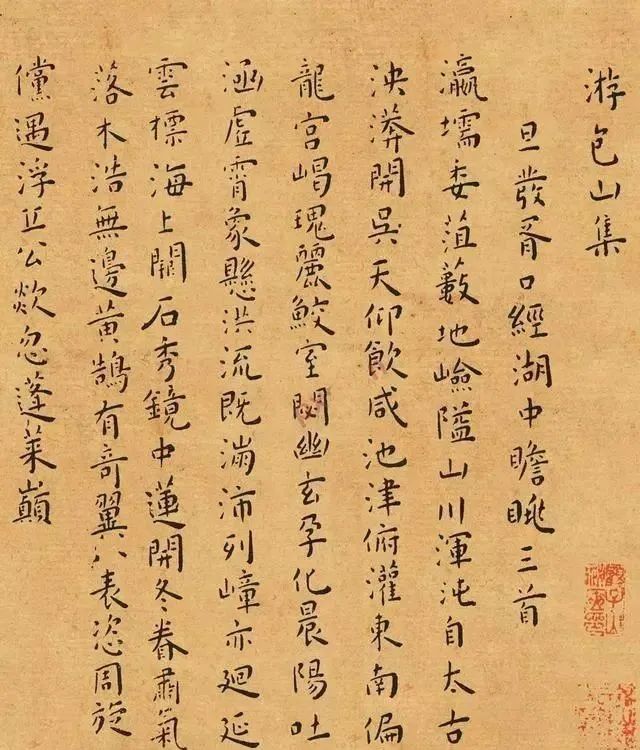 游包山集
旦發胥口經湖中瞻眺三首
瀛壖委菹藪地嶮隘山川渾沌自太古
泱漭開吳天仰飲咸池津俯灌東南偏
龍宮崼瑰麗鮫室閟幽玄孕化晨陽吐
涵虛霄象懸洪流既滿沛列嶂亦廻延
雲標海上關石秀鏡中蓮開冬眷肅氣
落木浩無邊黃鵠有奇翼八表恣周旋
儻遇浮丘公欻忽蓬萊巔